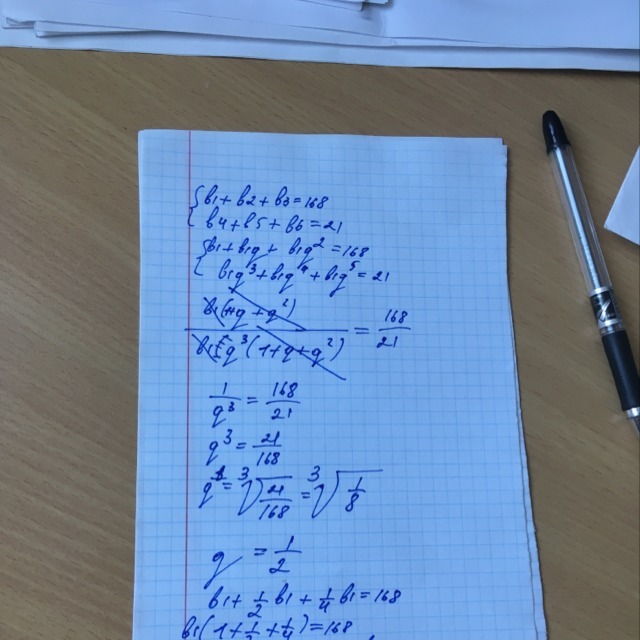 b1 + b2 + b3 = 168
b4 + b5 + b6 = 21
b1 + b1q + b1q² = 168
b1q³ + b1q⁴ + b1q⁵ = 21
b1(1+q+q²) / b1q³(1+q+q²) = 168/21
1/q³ = 168/21
q³ = 21/168
q = ³√(21/168) = ³√(1/8)
q = 1/2
b1 + 1/2 b1 + 1/4 b1 = 168
b1(1 + 1/2 + 1/4) = 168